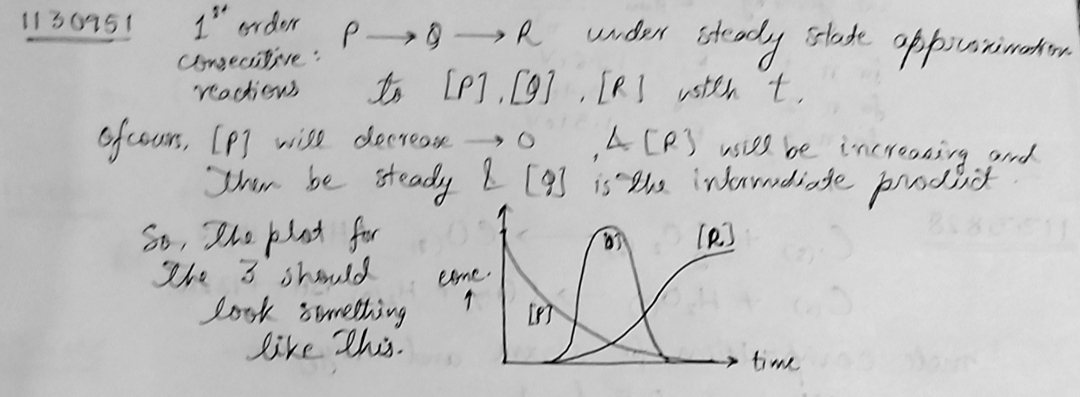 1130951
1st order P → Q → R under steady state approximation
consecutive :
reactions to [P], [Q], [R] with t.
Ofcours, [P] will decrease → 0, & [R] will be increasing and
Then be steady & [Q] is the intermediate product.
So, The plot for
The 3 should
look something
like This.
conc.
↑
[P]
[R]
→ time